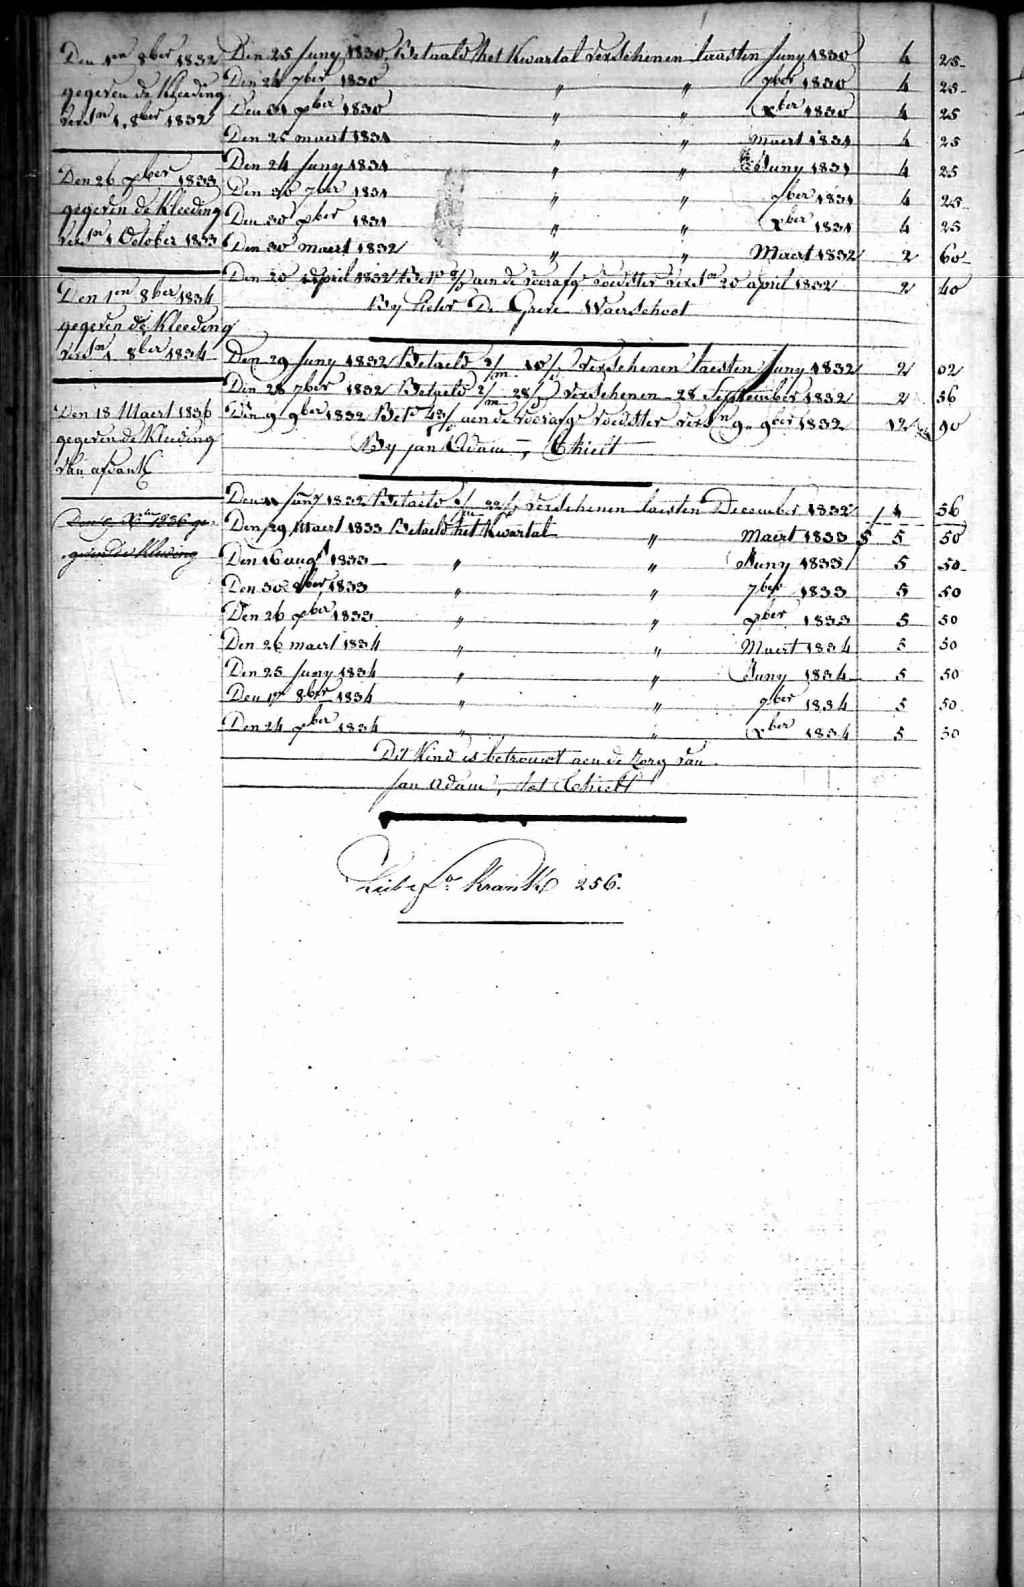 Den 1en 8ber 1832
gegeven de Kleeding
versn 1, 8ber 1832
Den 26 xber 1833
gegeven de Kleeding
versn 1 October 1833
Den 1en 8ber 1834
gegeven de Kleeding
versn 1 8ber 1834
Den 18 Maert 1836
gegeven de Kleeding
van afdank
Den 9 xber 1836 ge-
geven de kleeding
Den 25 Juny 1830 Betaald het Kwartal verschenen laasten Juny 1830 4 25
Den 24 7ber 1830 " " 7ber 1830 4 25
Den 31 xber 1830 " " xber 1830 4 25
Den 25 maert 1831 " " maert 1831 4 25
Den 24 Juny 1831 " " Juny 1831 4 25
Den 30 7ber 1831 " " 7ber 1831 4 25
Den 30 xber 1831 " " xber 1831 4 25
Den 30 maert 1832 " " Maert 1832 2 60
Den 20 april 1832 aen de voorafge voedster versn 20 april 1832 2 40
By Pieter De Greve Waerschoot
Den 29 Juny 1832 Betaeld verschenen laesten Juny 1832 2 02
Den 28 7ber 1832 Betaeld verschenen 28 September 1832 2 56
Den 9 9ber 1832 aen de voorafge voedster versn 9 9ber 1832 12 90
By Jan Adam, Thielt
Den 11 Jany 1832 Betaeld verschenen laesten December 1832 1 56
Den 29 Maert 1833 Betaeld het Kwartal " Maert 1833 5 50
Den 16 augt 1833 " " Juny 1833 5 50
Den 30 8ber 1833 " " 7ber 1833 5 50
Den 26 xber 1833 " " xber 1833 5 50
Den 26 maert 1834 " " Maert 1834 5 50
Den 25 Juny 1834 " " Juny 1834 5 50
Den 1en 8ber 1834 " " 7ber 1834 5 50
Den 24 xber 1834 " " xber 1834 5 50
Dit Kind is betrouwt aen de Zorg van
Jan Adam, tot Thielt
256.